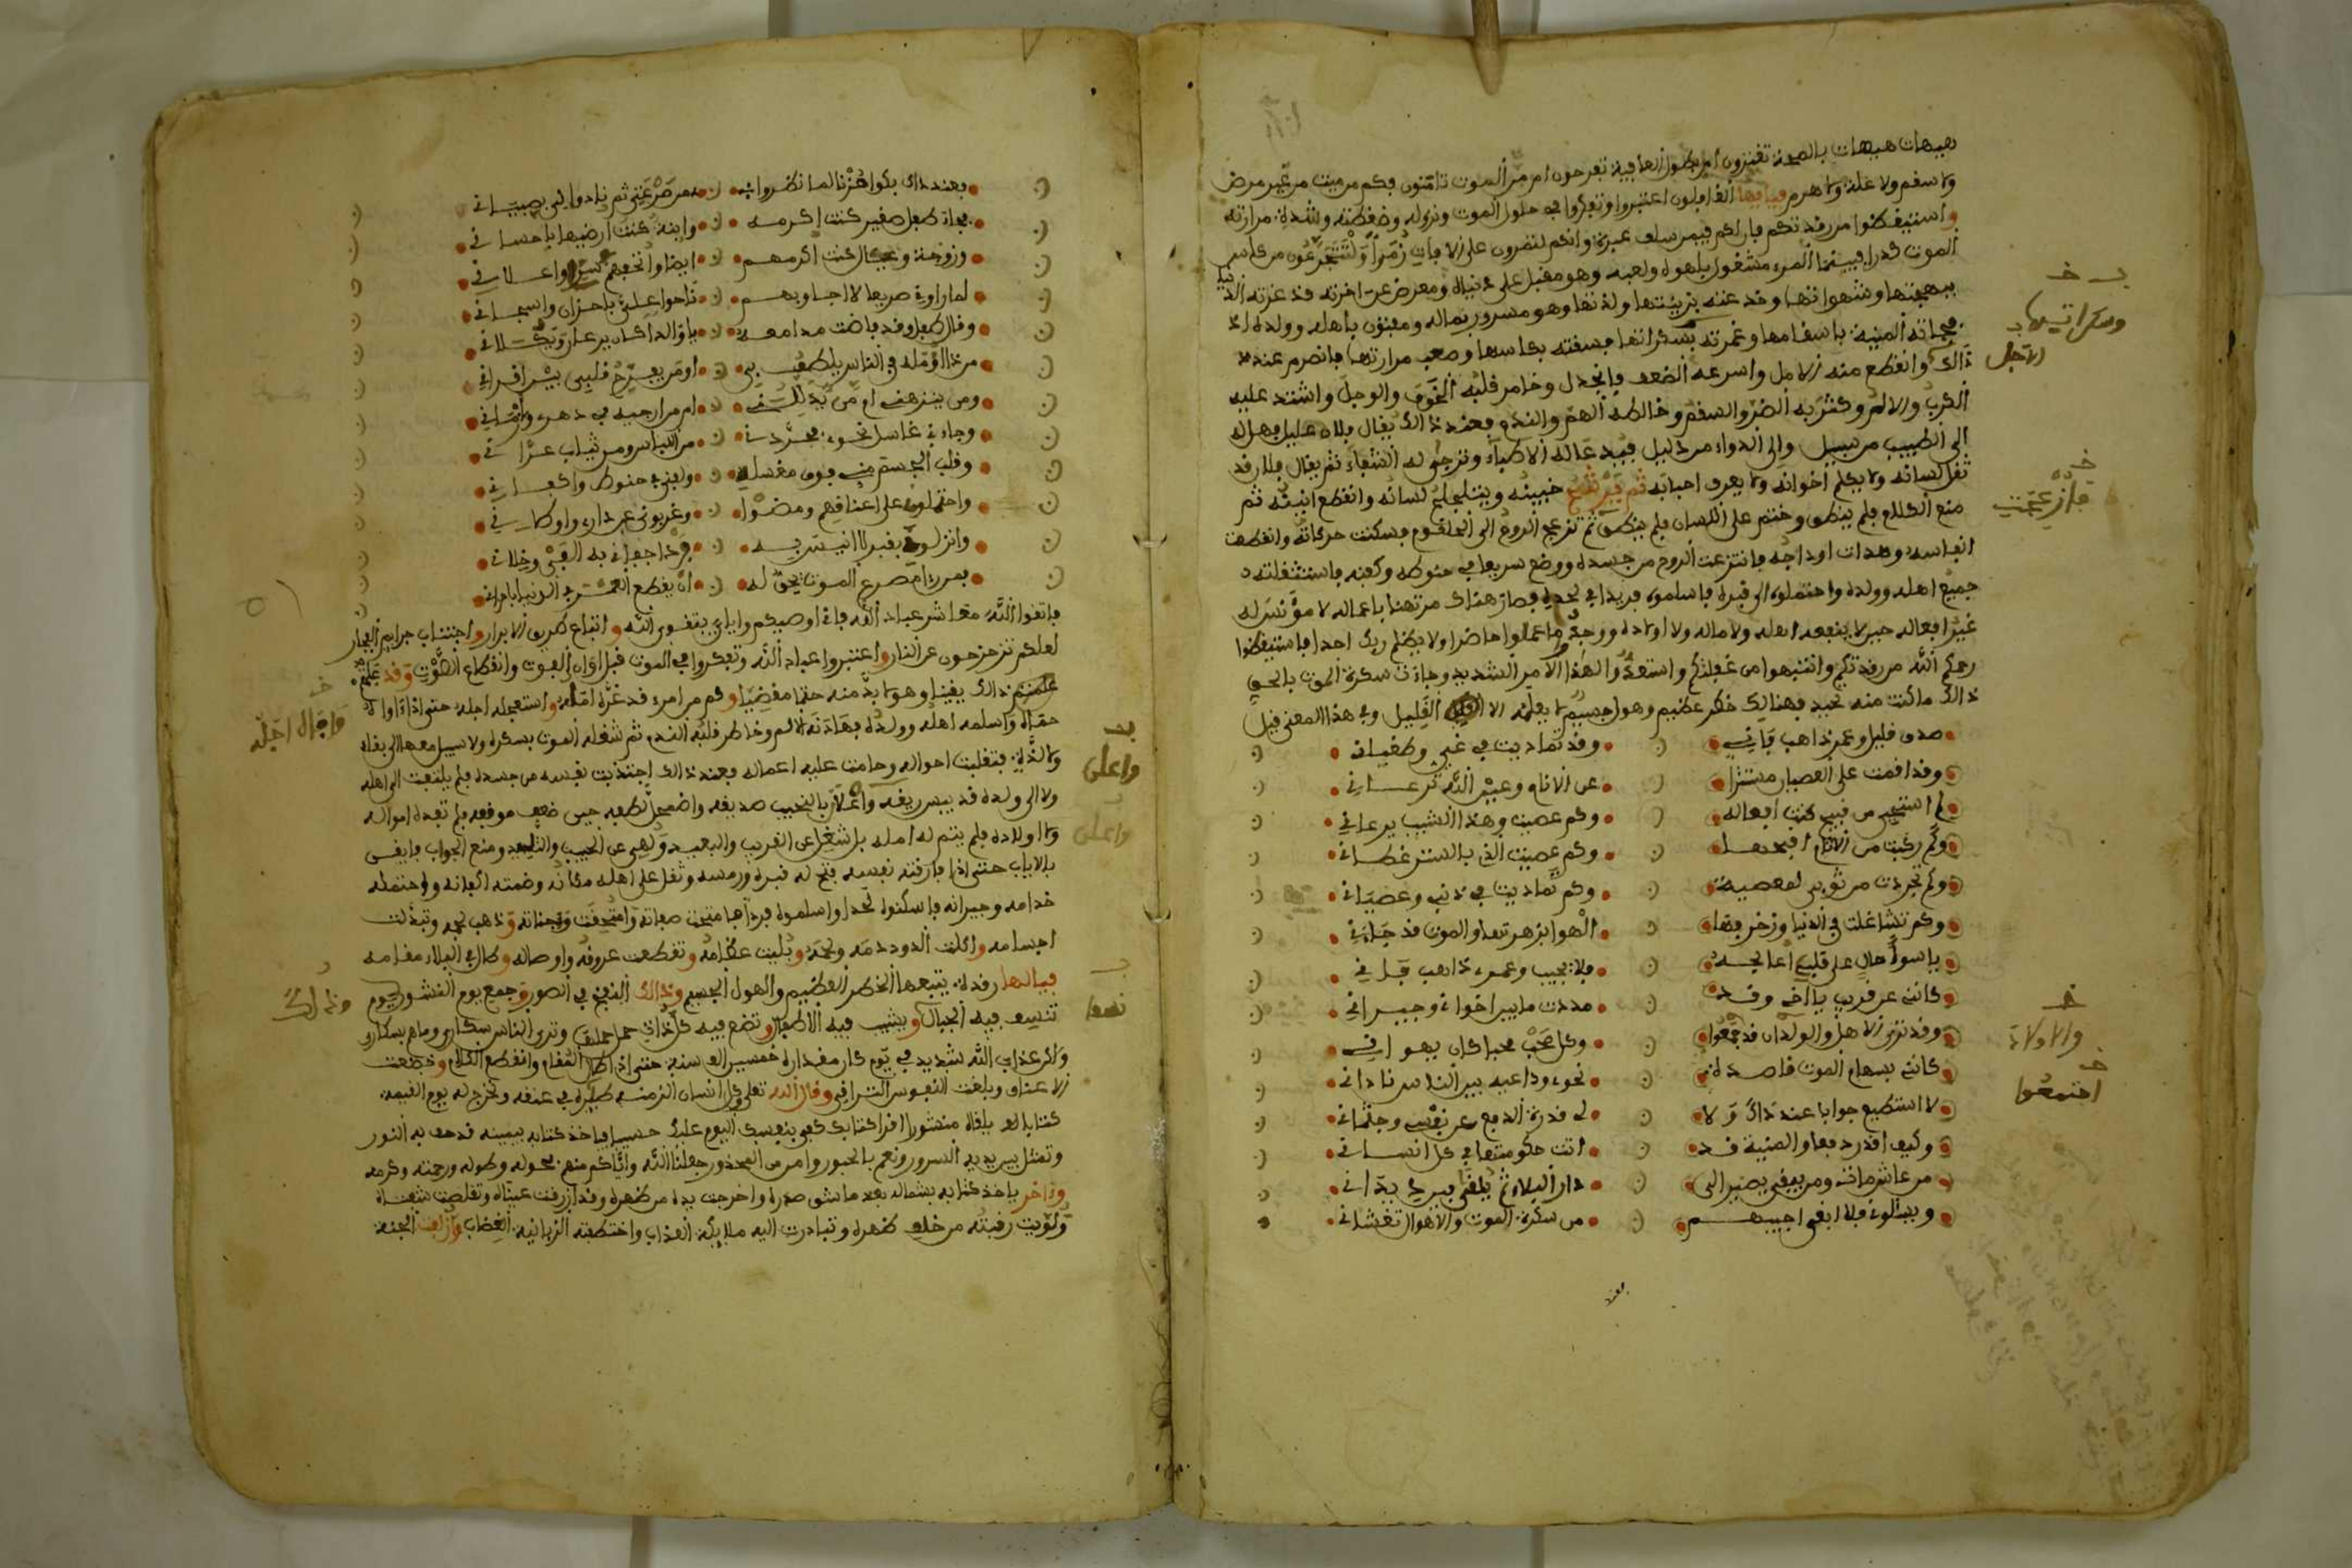 هيهات هيهات بالصحة تغترون ام بطول العافية تفرحون ام مر الموت تامنون فكم من ميت من غير مرض
ولا سقم ولا علة ولا هرم فيا ايها الغافلون اعتبروا وتفكروا في حلول الموت ونزوله وضغطته وشدة مرارته
واستيقظوا من رقدتكم فان لكم فيمن سلف عبرة وانكم لتمرون على الافات زمرا ولتتجرعون من كاس
الموت كدرا فبينما المرء مشغول بلهوه ولعبه وهو مقبل على دنياه ومعرض عن اخرته قد غرته الدنيا
ببهجتها وشهواتها وخدعته بزينتها ولذتها وهو مسرور بماله ومفتون باهله وولده اذ
فجاته المنية باسقامها وغمرته بسكراتها فسقته بكاسها وصعب مرارتها فانصرم عند
ذالك وانقطع منه الامل واسرعه الضعف وانجدل وخامر قلبه الخوف والوجل واشتد عليه
الكرب والالم وكثر به الضر والسقم وخالطه الهم والندم فعند ذالك يقال فلان عليل فهل له
الى الطبيب من سبيل والى الدواء من دليل فيدعا له الاطباء وترجى له الشفاء ثم يقال فلان قد
ثقل لسانه ولا يكلم اخوانه ولا يعرف احبابه ثم يرشح جبينه ويتلجلج لسانه وانقطع انينه ثم
منع الكلام فلم ينطق وختم على اللسان فلم ينطق ثم تزعج الروح الى الحلقوم فسكنت حركاته وانقطعت
انفاسه وهدات اوداجه فانتزعت الروح من جسده ووضع سريعا في حنوطه وكفنه فاستثقلته
جميع اهله وولده واحتملوه الى قبره فاسلموه فريدا في لحده فصار هناك مرتهنا باعماله لا مؤنس له
غير افعاله حين لا ينفعه اهله ولا ماله ولا اولاده ووجدوا ما عملوا حاضرا ولا يظلم ربك احدا فاستيقظوا
رحمكم الله من رقدتكم وانتبهوا من غفلتكم واستعدوا لهذا الامر الشديد وجاءت سكرة الموت بالحق
ذالك ما كنت منه تحيد فهنالك خطر عظيم وهول جسيم لا يعلمه الا القليل وفي هذا المعنى قيل
صدى قليل وعمر ذاهب فاني • وقد تماديت في غيي وطغياني
وقد اقمت على العصيان مستترا • عن الانام وعين الله ترعاني
لم استحي من قبيح كنت افعاله • وكم عصيت وهذا الشيب يرعاني
وكم ركبت من الاثام اقبحها • وكم عصيت الذي بالستر غطاني
وكم تجردت من ثوبي لمعصية • وكم تماديت في ذنبي وعصياني
وكم تشاغلت في الدنيا وزخرفها • الهوا بزهرتها والموت قد جاني
يا سوء حال على قلبي اعالجه • فلا نجيب وعمر ذاهب فاني
كانني عن قريب يا اخي وقد • مددت ما بين اخواني وجيراني
وقد ترى الاهل والولدان قد جمعوا • وكل صحب محبا كان يهواني
كانني بسهام الموت قاصدة • نحوي وداعيه بين الناس ناداني
لا استطيع جوابا عند ذاك ولا • لي قدرة ادفع عن نفسي وجثماني
وكيف اقدر دفعا والمنية قد • اتت حكومتها في كل انسان
من عاش مات ومن يبقى يصير الى • دار البلاء ثم يلقى بين يد ياني
ويسالوني فلا ابغي اجيبهم • من سكرة الموت والاهوال تغشاني
فعند
وسكراتها
الاجل
فانزعجت
والاولاد
اجتمعوا
فعند ذاك بكوا حزنا لما نظروا • ممرضي عني ثم نادوا لي بصيياني
فجاءة طفل صغير كنت اكرمه • وابنة كنت ارضيها باحساني
وزوجة وعيال كنت اكرمهم • ايضا وانحفهم سرا واعلاني
لما راوني صريعا لا اجاوبهم • ناحوا علي باحزان واسجاني
وقال طفل وقد فاضت مدامعه • يا والدا كان يرعاني ويكلاني
من ذا اؤمله في الناس يلطف بي • او من يفرج قلبي بين اقراني
ومن ينزهني ام من يدللني • ام من ارجيه في دهري وازماني
وجاءني غاسل نحوي فجردني • من اللباس ومن ثياب عراني
وقلب الجسم مني فوق مغسله • ولفني في حنوط واكفاني
واحتملوني على اعناقهم ومضوا • وغربوني عن داري واوطاني
وانزلوني بقبر لا انيس به • فردا جفاني به القبى وخلاني
فمن را مصرع الموت يحق له • ان يقطع العمر في الدنيا باحزاني
فاتقوا الله معاشر عباد الله فاني اوصيكم واياي بتقوى الله واتباع طريق الابرار واجتناب جرايم الفجار
لعلكم تزحزحون عن النار واعتبروا عباد الله وتفكروا في الموت قبل اوان الفوت وانقطاع الصوت وقد علمتم
علمتم ذالك يقينا وهو لا بد منه حتما مقضيا وكم من امرء قد غره امله واستعجله اجله حتى اذا اواله
حقاله واسلمه اهله وولده فعاد نه الالم وخاطر قلبه الندم ثم شغله الموت بسكره ولا سبيل معه الى بقاء
ولا لذة فتقلبت احواله وحامت عليه اعماله فعند ذالك اجتذبت نفسه من جسده فلم يلتفت الى اهله
ولا الى ولده قد يبس ريقه واعلا بالنحيب صديقه واضمحل لطفه حين ضعف موقعه فلم تفده امواله
ولا اولاده فلم يتم له امله بل اشغل عن القريب والبعيد ولهي عن الحبيب والتليد ومنع الجواب وايقن
بالاياب حتى اذا فارقته نفسه فتح له قبره ورمسه وثقل على اهله مكانه وضمته اكفانه واحتمله
خدامه وجيرانه فاسكنوه لحدا واسلموه فردا فامتحت صفاته وامتحقت وجناته وذهب لحمه وتبدلت
اجسامه واكلت الدود دمه ولحمه وبليت عظامه وتقطعت عروقه واوصاله وطال في البلاء مقامه
فيالها رقدة يتبعها الخطر العظيم والهول الجسيم وذالك النفخ في الصور وجمع يوم النشور يوم
تنسف فيه الجبال ويشيب فيه الاطفال وتضع فيه كل ذات حمل حملها وترى الناس سكارى وما هم بسكارى
ولاكن عذاب الله شديد في يوم كان مقداره خمسين الف سنة حتى اذا طال المقام وانقطع الكلام وخضعت
الاعناق وبلغت النفوس التراقي وقال الله تعلى وكل انسان الزمنه طيره في عنقه ونخرج له يوم القيمة
كتابا يلقاه منشورا اقرا كتابك كفى بنفسك اليوم عليك حسيبا فياخذ كتابه بيمينه قد حف به النور
وتمثل بين يديه السرور ونعم بالحبور وامن من المحذور جعلنا الله واياكم منهم بحوله وطوله ورحمته وكرمه
واخر ياخذ كتابه بشماله بعد ما شق صدره واخرجت يده من ظهره وقد ازرقت عيناه وتقلصت شفتاه
ولويت رقبته من خلف ظهره وتبادرت اليه ملايكة العذاب واختطفته الزبانية الغضاب وازلفت الجنة
واعلى
واعلى
وذالك